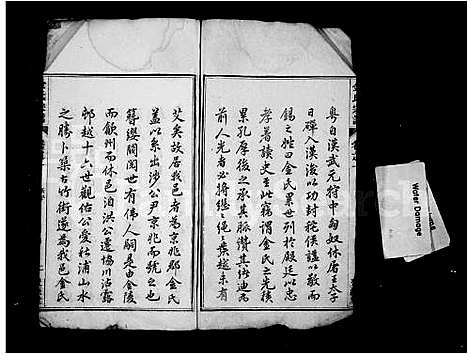 粤自漢武元狩中匈奴休屠王太子
日磾入漢後以功封秺侯謹以敬而
錫之姓曰金氏累世列於殿廷以忠
孝著讀史至此竊謂金氏之先積
累孔厚後之承其脈、繼其術迪
前人光者必將繼繼繩繩彝越未有
艾矣故居我邑者為京兆郡金氏
蓋以系出涉公尹京兆而號之也
簪纓閥閱世有偉人嗣是由金陵
而歙州而休邑洎洪公遷協川沾露
郎越十六世觀佑公愛秋浦山水
之勝卜築古竹街遂為我邑金氏
Water Damage